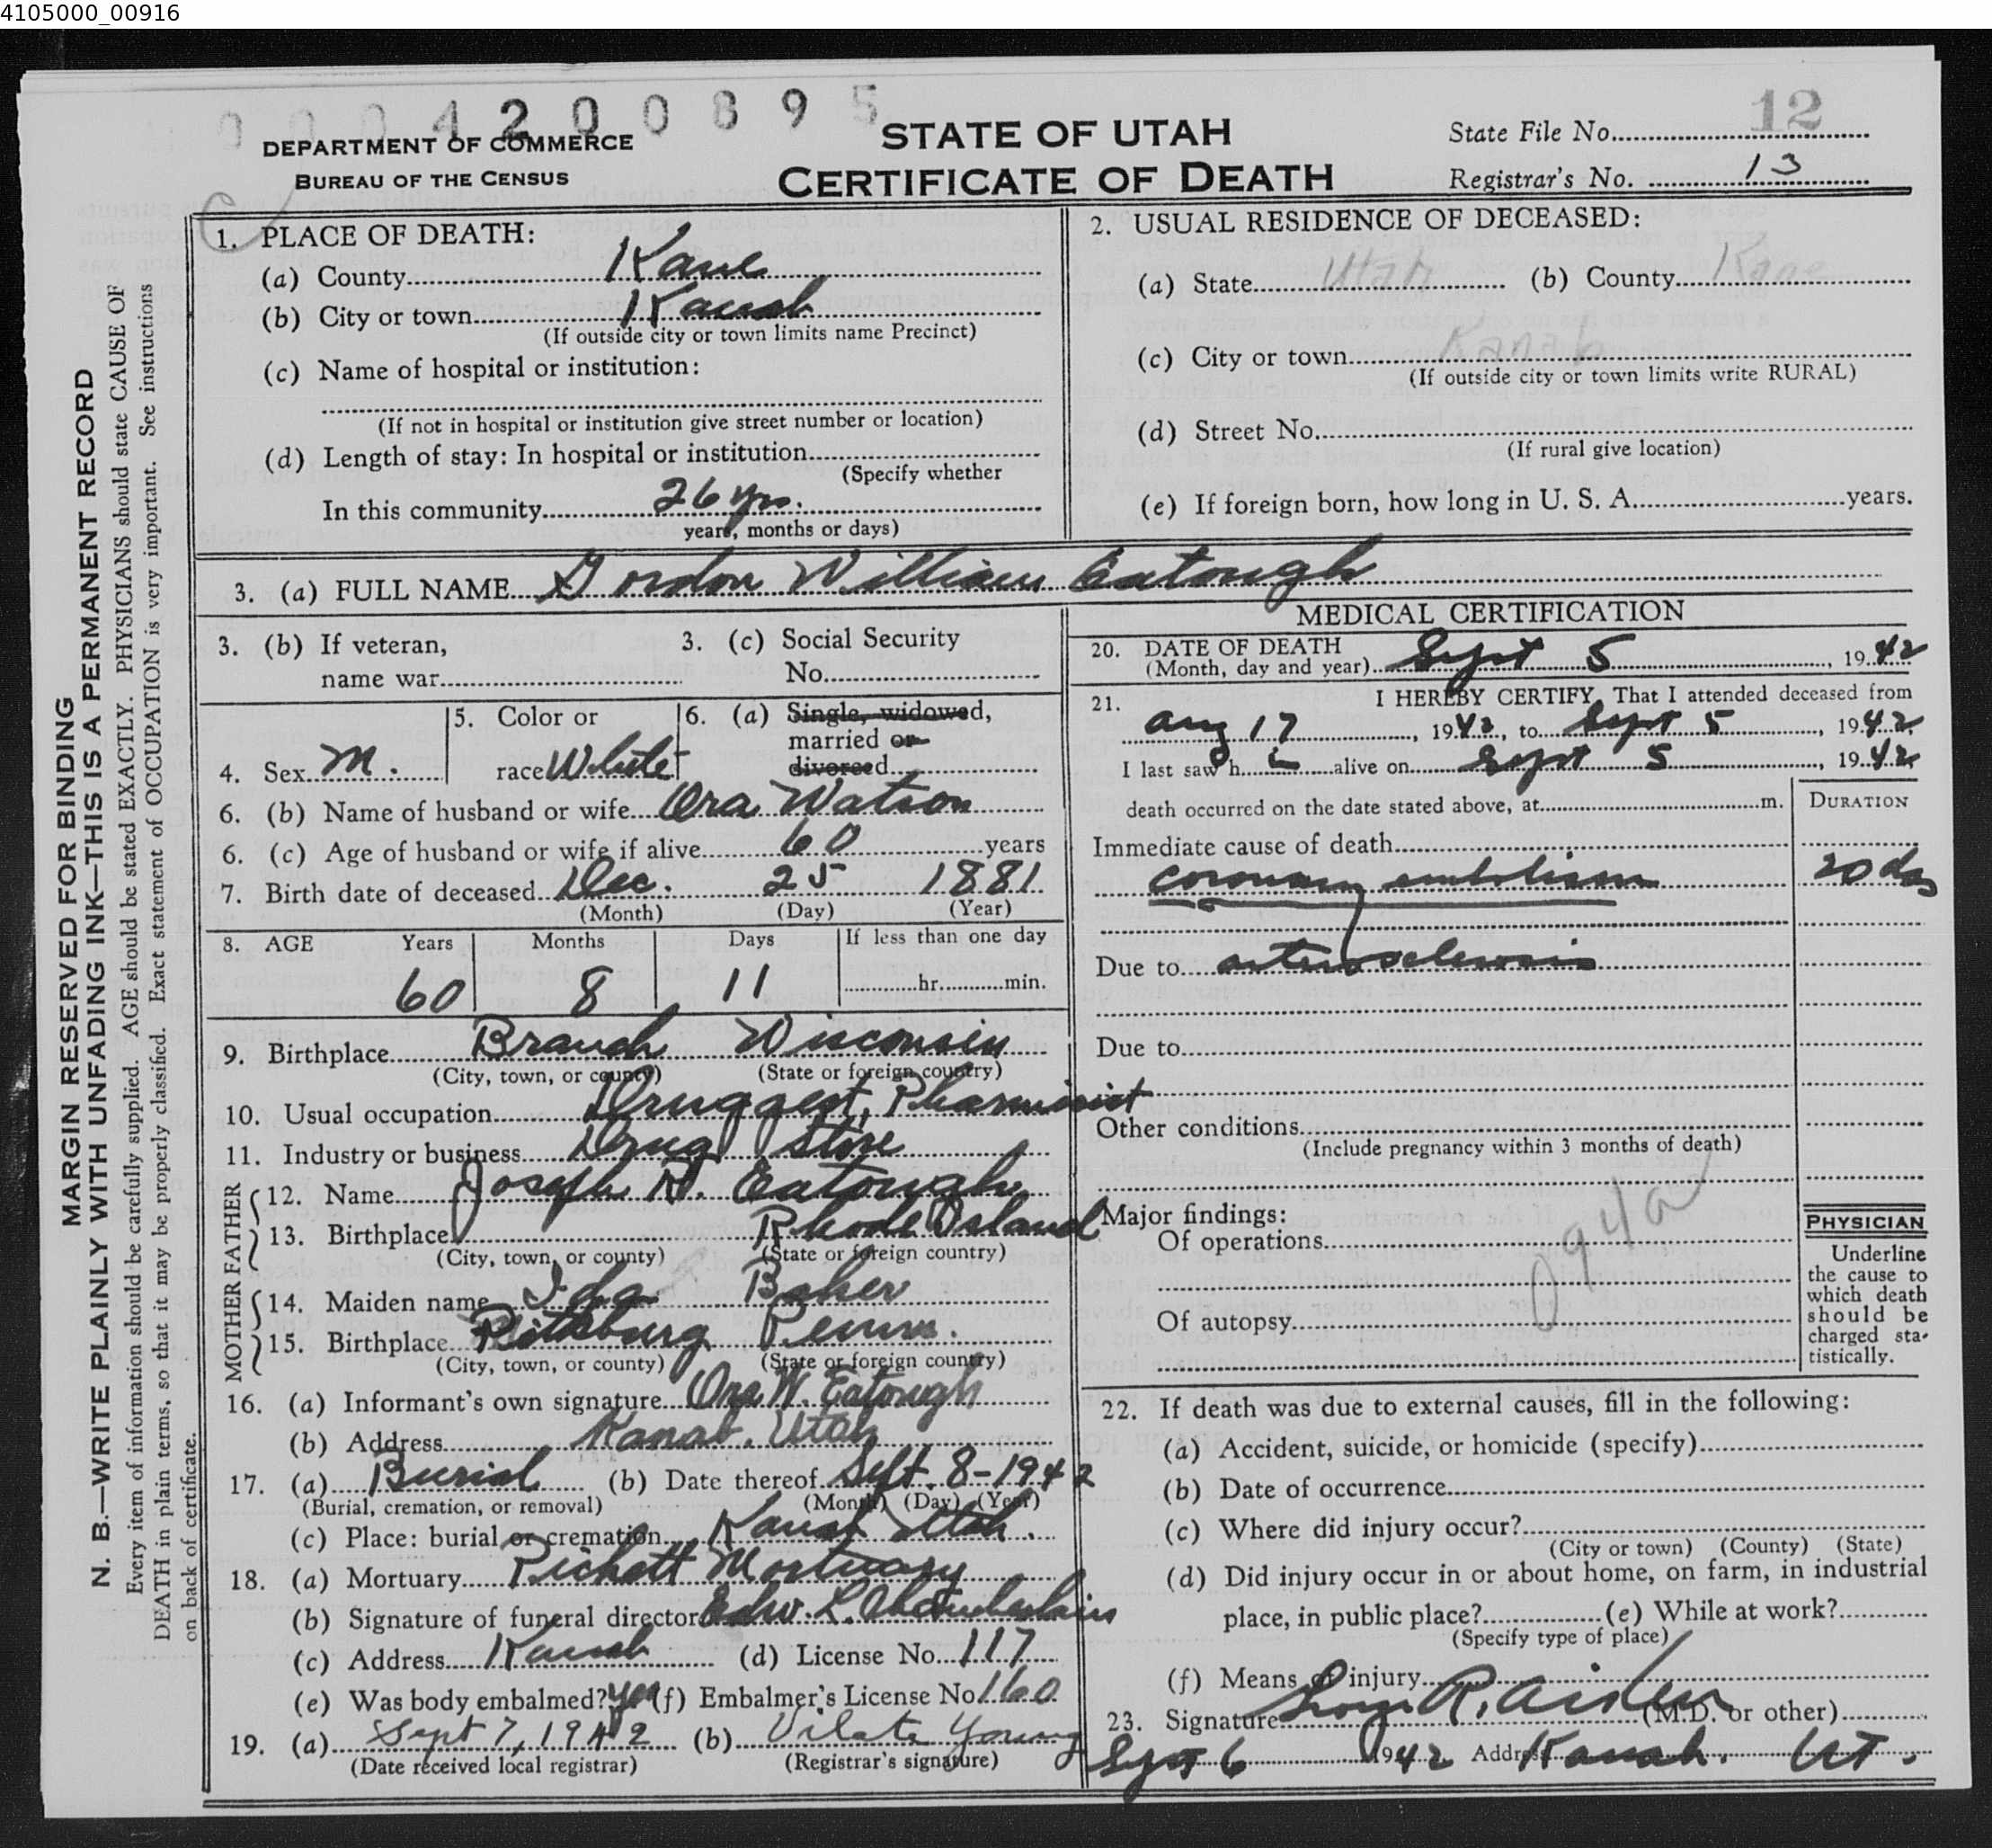 4105000_00916
0 0 0 4 2 0 0 8 9 5
DEPARTMENT OF COMMERCE
BUREAU OF THE CENSUS
STATE OF UTAH
CERTIFICATE OF DEATH
State File No. 12
Registrar's No. 13
MARGIN RESERVED FOR BINDING
N. B.—WRITE PLAINLY WITH UNFADING INK—THIS IS A PERMANENT RECORD
Every item of information should be carefully supplied. AGE should be stated EXACTLY. PHYSICIANS should state CAUSE OF
DEATH in plain terms, so that it may be properly classified. Exact statement of OCCUPATION is very important. See instructions
on back of certificate.
1. PLACE OF DEATH:
(a) County Kane
(b) City or town Kanab
(If outside city or town limits name Precinct)
(c) Name of hospital or institution:
(If not in hospital or institution give street number or location)
(d) Length of stay: In hospital or institution
(Specify whether
In this community 26 yrs.
years, months or days)
2. USUAL RESIDENCE OF DECEASED:
(a) State Utah (b) County Kane
(c) City or town Kanab
(If outside city or town limits write RURAL)
(d) Street No.
(If rural give location)
(e) If foreign born, how long in U. S. A. years.
3. (a) FULL NAME Gordon William Eatough
3. (b) If veteran,
name war
3. (c) Social Security
No.
4. Sex M.
5. Color or
race White
6. (a) Single, widowed,
married or
divorced
6. (b) Name of husband or wife Ora Watson
6. (c) Age of husband or wife if alive 60 years
7. Birth date of deceased Dec. 25 1881
(Month) (Day) (Year)
8. AGE Years Months Days If less than one day
60 8 11 hr. min.
9. Birthplace Branch Wisconsin
(City, town, or county) (State or foreign country)
10. Usual occupation Druggest, Pharmicist
11. Industry or business Drug Store
FATHER
12. Name Joseph R. Eatough
13. Birthplace Rhode Island
(City, town, or county) (State or foreign country)
MOTHER
14. Maiden name Ida Baker
15. Birthplace Pittsburg Penn.
(City, town, or county) (State or foreign country)
16. (a) Informant's own signature Ora W. Eatough
(b) Address Kanab, Utah
17. (a) Burial (b) Date thereof Sept. 8-1942
(Burial, cremation, or removal) (Month) (Day) (Year)
(c) Place: burial or cremation Kanab Utah.
18. (a) Mortuary Pickett Mortuary
(b) Signature of funeral director Edw. L. Chamberlain
(c) Address Kanab (d) License No. 117
(e) Was body embalmed? yes (f) Embalmer's License No. 160
19. (a) Sept 7, 1942 (b) Vilate Young
(Date received local registrar) (Registrar's signature)
MEDICAL CERTIFICATION
20. DATE OF DEATH
(Month, day and year) Sept 5, 1942
21. I HEREBY CERTIFY, That I attended deceased from
Aug 17, 1942, to Sept 5, 1942
I last saw h i alive on Sept 5, 1942
death occurred on the date stated above, at m.
DURATION
Immediate cause of death
coronary embolism 20 das
Due to arterosclerosis
Due to
Other conditions
(Include pregnancy within 3 months of death)
Major findings:
Of operations
094a
Of autopsy
PHYSICIAN
Underline
the cause to
which death
should be
charged sta-
tistically.
22. If death was due to external causes, fill in the following:
(a) Accident, suicide, or homicide (specify)
(b) Date of occurrence
(c) Where did injury occur?
(City or town) (County) (State)
(d) Did injury occur in or about home, on farm, in industrial
place, in public place? (e) While at work?
(Specify type of place)
(f) Means of injury
23. Signature R. Aiken (M.D. or other)
Sept 6 1942 Address Kanab. UT.